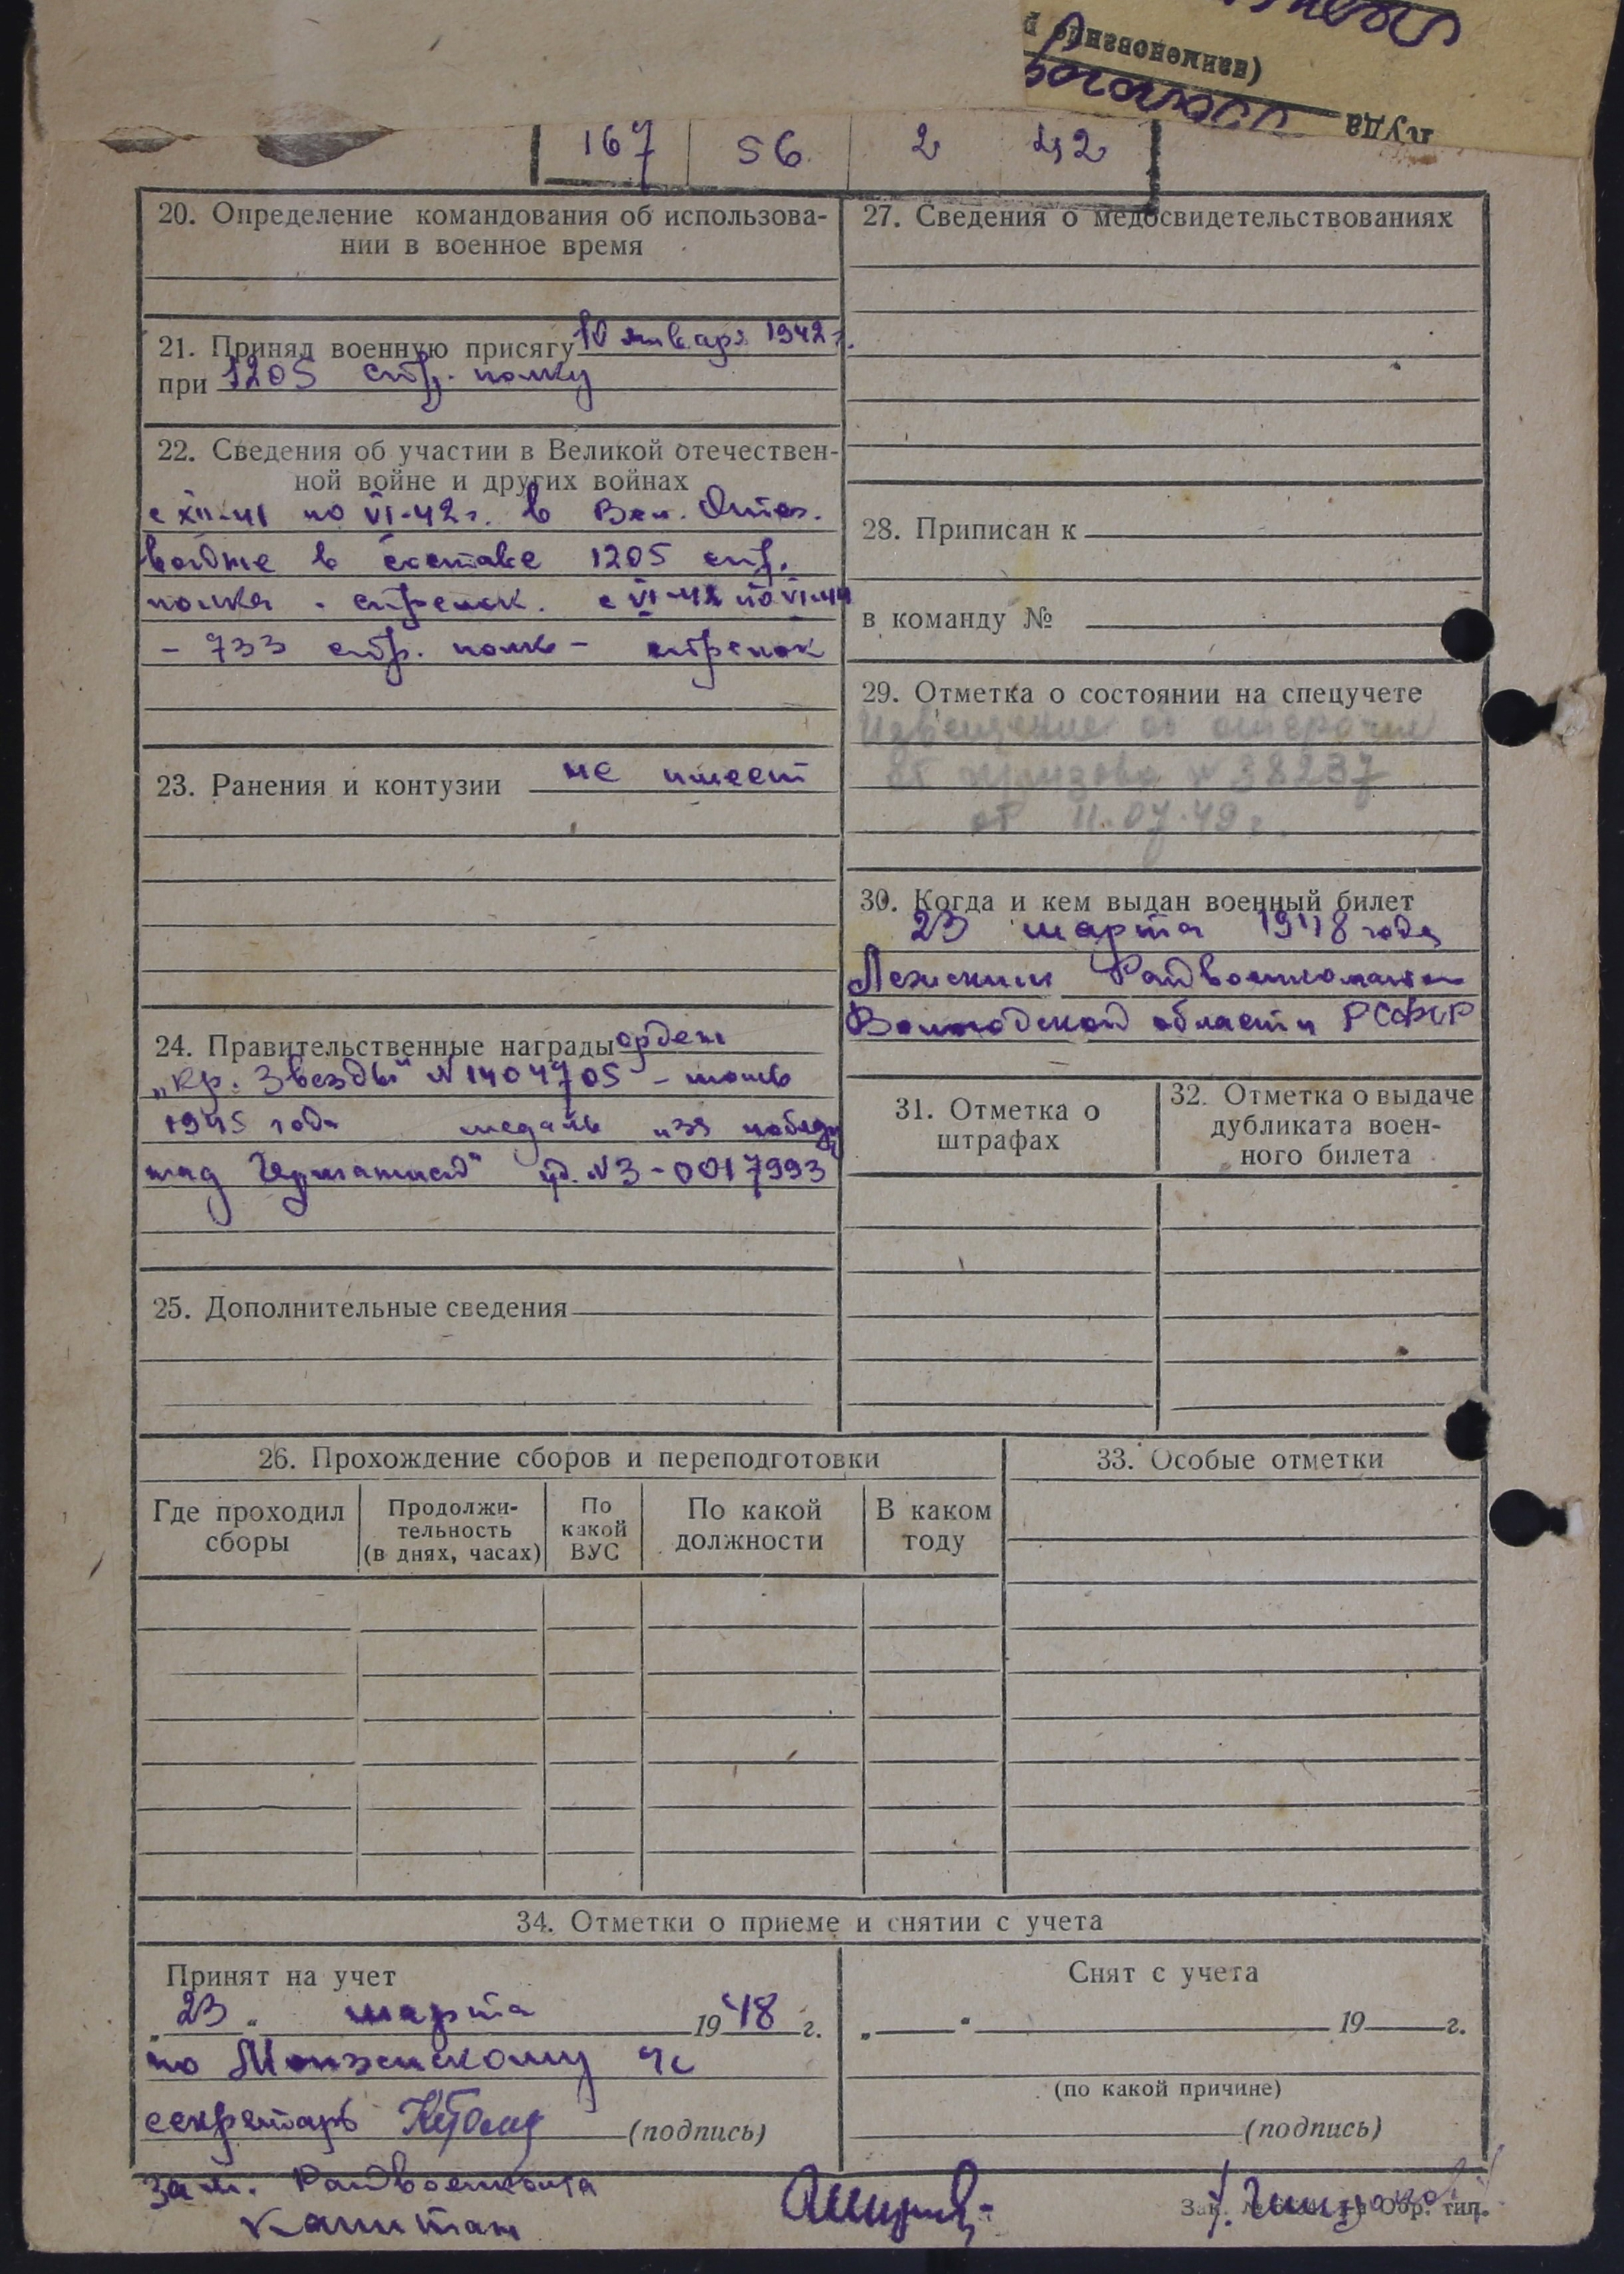 (наименование р
пуда
167 56 2 42
20. Определение командования об использова-
нии в военное время
21. Принял военную присягу 10 января 1942 г.
при 1205 стр. полку
22. Сведения об участии в Великой отечествен-
ной войне и других войнах
с XII-41 по VI-42 г. в Вел. Отеч.
войне в составе 1205 стр.
полка - стрелок. с VI-42 по VI-44
- 733 стр. полк - стрелок
23. Ранения и контузии не имеет
24. Правительственные награды орден
„Кр. Звезды" N 1404705 -
1945 года медаль „за победу
над Германией" уд. N З-0017993
25. Дополнительные сведения
26. Прохождение сборов и переподготовки
Где проходил
сборы
Продолжи-
тельность
(в днях, часах)
По
какой
ВУС
По какой
должности
В каком
году
27. Сведения о медосвидетельствованиях
28. Приписан к
в команду №
29. Отметка о состоянии на спецучете
Извещение об отсрочке
от призыва N 38237
от 11.07.49 г.
30. Когда и кем выдан военный билет
23 марта 1948 года
Райвоенкоматом
Вологодской области РСФСР
31. Отметка о
штрафах
32. Отметка о выдаче
дубликата воен-
ного билета
33. Особые отметки
34. Отметки о приеме и снятии с учета
Принят на учет
„23" марта 1948 г.
по Монзенскому
секретарь (подпись)
Снят с учета
„ " 19 г.
(по какой причине)
(подпись)
зам. Райвоенкома
Капитан
Зак. № Обр. тип.